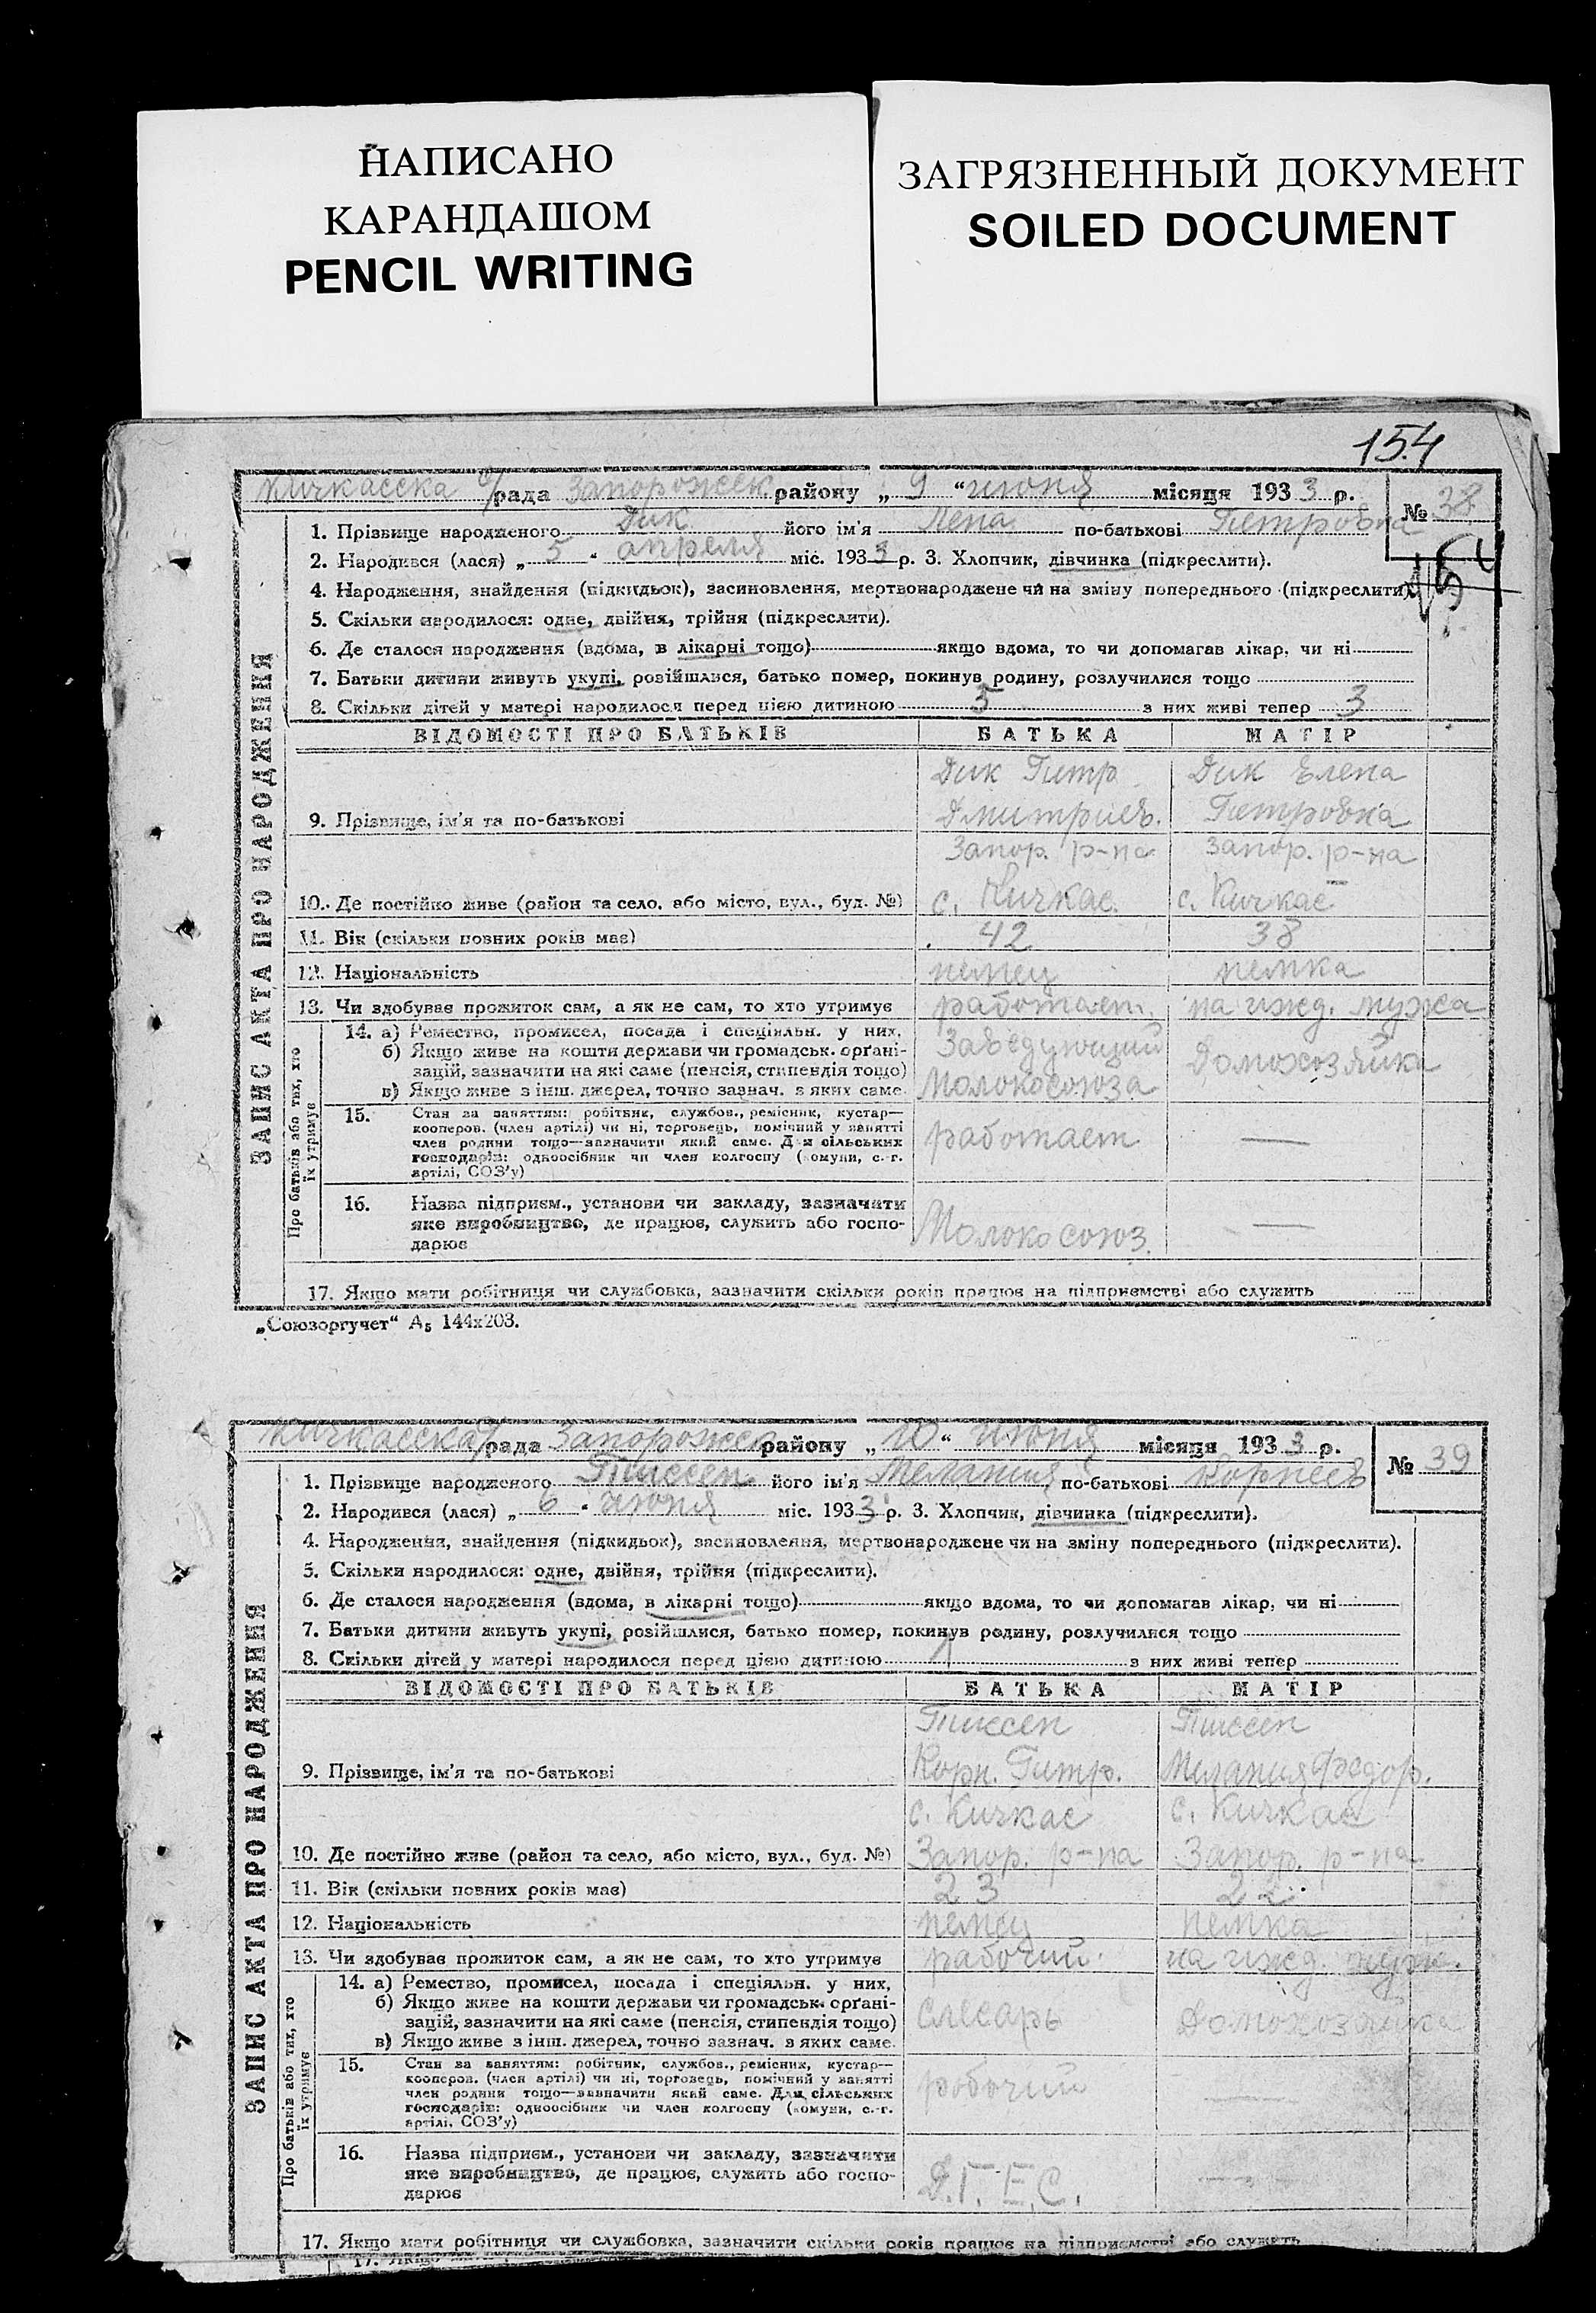 НАПИСАНО
КАРАНДАШОМ
PENCIL WRITING
ЗАГРЯЗНЕННЫЙ ДОКУМЕНТ
SOILED DOCUMENT
154
Кичкасска с/рада Запорожск району „ 9 “ июня місяця 1933 р.
№ 38
1. Прізвище народженого Дик його ім'я Лена по-батькові Петровна
2. Народився (лася) „ 5 “ апреля міс. 1933 р. 3. Хлопчик, дівчинка (підкреслити).
154
4. Народження, знайдення (підкидьок), засиновлення, мертвонароджене чи на зміну попереднього (підкреслити).
5. Скільки народилося: одне, двійня, трійня (підкреслити).
6. Де сталося народження (вдома, в лікарні тощо) якщо вдома, то чи допомагав лікар, чи ні
7. Батьки дитини живуть укупі, розійшлися, батько помер, покинув родину, розлучилися тощо
8. Скільки дітей у матері народилося перед цією дитиною 5 з них живі тепер 3
ЗАПИС АКТА ПРО НАРОДЖЕННЯ
ВІДОМОСТІ ПРО БАТЬКІВ БАТЬКА МАТІР
Дик Петр Дик Елена
9. Прізвище, ім'я та по-батькові Дмитриев. Петровна
Запор. р-на Запор. р-на
10. Де постійно живе (район та село, або місто, вул., буд. №) с. Кичкас с. Кичкас
11. Вік (скільки повних років має) 42 38
12. Національність немец немка
13. Чи здобуває прожиток сам, а як не сам, то хто утримує работает на ижд. мужа
Про батьків або тих, хто їх утримує
14. а) Ремество, промисел, посада і спеціяльн. у них, Заведующий
б) Якщо живе на кошти держави чи громадськ. орґані- Домохозяйка
зацій, зазначити на які саме (пенсія, стипендія тощо)
в) Якщо живе з інш. джерел, точно зазнач. з яких саме. Молокосоюза
15. Стан за заняттям: робітник, службов., ремісник, кустар—
кооперов. (член артілі) чи ні, торговець, помічний у занятті работает —
член родини тощо—зазначити який саме. Для сільських
господарів: одноосібник чи член колгоспу (комуни, с.-г.
артілі, СОЗ'у)
16. Назва підприєм., установи чи закладу, зазначити
яке виробництво, де працює, служить або госпо- Молокосоюз. —
дарює
17. Якщо мати робітниця чи службовка, зазначити скільки років працює на підприємстві або служить
„Союзоргучет“ А5 144х203.
Кичкасска с/рада Запорожск району „ 10 “ июня місяця 1933 р.
№ 39
1. Прізвище народженого Тиссен його ім'я Мелания по-батькові Корнеев
2. Народився (лася) „ 6 “ июня міс. 1933 р. 3. Хлопчик, дівчинка (підкреслити).
4. Народження, знайдення (підкидьок), засиновлення, мертвонароджене чи на зміну попереднього (підкреслити).
5. Скільки народилося: одне, двійня, трійня (підкреслити).
6. Де сталося народження (вдома, в лікарні тощо) якщо вдома, то чи допомагав лікар, чи ні
7. Батьки дитини живуть укупі, розійшлися, батько помер, покинув родину, розлучилися тощо
8. Скільки дітей у матері народилося перед цією дитиною 1 з них живі тепер
ЗАПИС АКТА ПРО НАРОДЖЕННЯ
ВІДОМОСТІ ПРО БАТЬКІВ БАТЬКА МАТІР
Тиссен Тиссен
9. Прізвище, ім'я та по-батькові Корн. Петр. Мелания Федор.
с. Кичкас с. Кичкас
10. Де постійно живе (район та село, або місто, вул., буд. №) Запор. р-на Запор. р-на
11. Вік (скільки повних років має) 23 22
12. Національність немец немка
13. Чи здобуває прожиток сам, а як не сам, то хто утримує рабочий на ижд. муж.
Про батьків або тих, хто їх утримує
14. а) Ремество, промисел, посада і спеціяльн. у них,
б) Якщо живе на кошти держави чи громадськ. орґані- слесарь Домохозяйка
зацій, зазначити на які саме (пенсія, стипендія тощо)
в) Якщо живе з інш. джерел, точно зазнач. з яких саме.
15. Стан за заняттям: робітник, службов., ремісник, кустар—
кооперов. (член артілі) чи ні, торговець, помічний у занятті рабочий —
член родини тощо—зазначити який саме. Для сільських
господарів: одноосібник чи член колгоспу (комуни, с.-г.
артілі, СОЗ'у)
16. Назва підприєм., установи чи закладу, зазначити
яке виробництво, де працює, служить або госпо- Д.Г.Е.С. —
дарює
17. Якщо мати робітниця чи службовка, зазначити скільки років працює на підприємстві або служить
17. Якщо